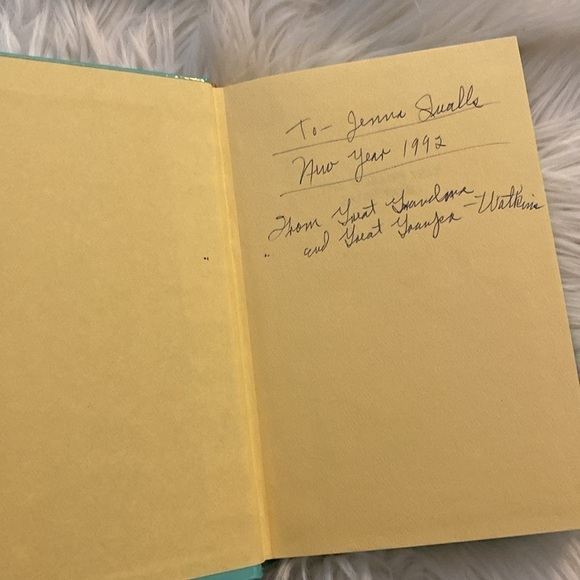 To- Jenna Qualls
New Year 1992
From Great Grandma
and Great Granpa -Watkins